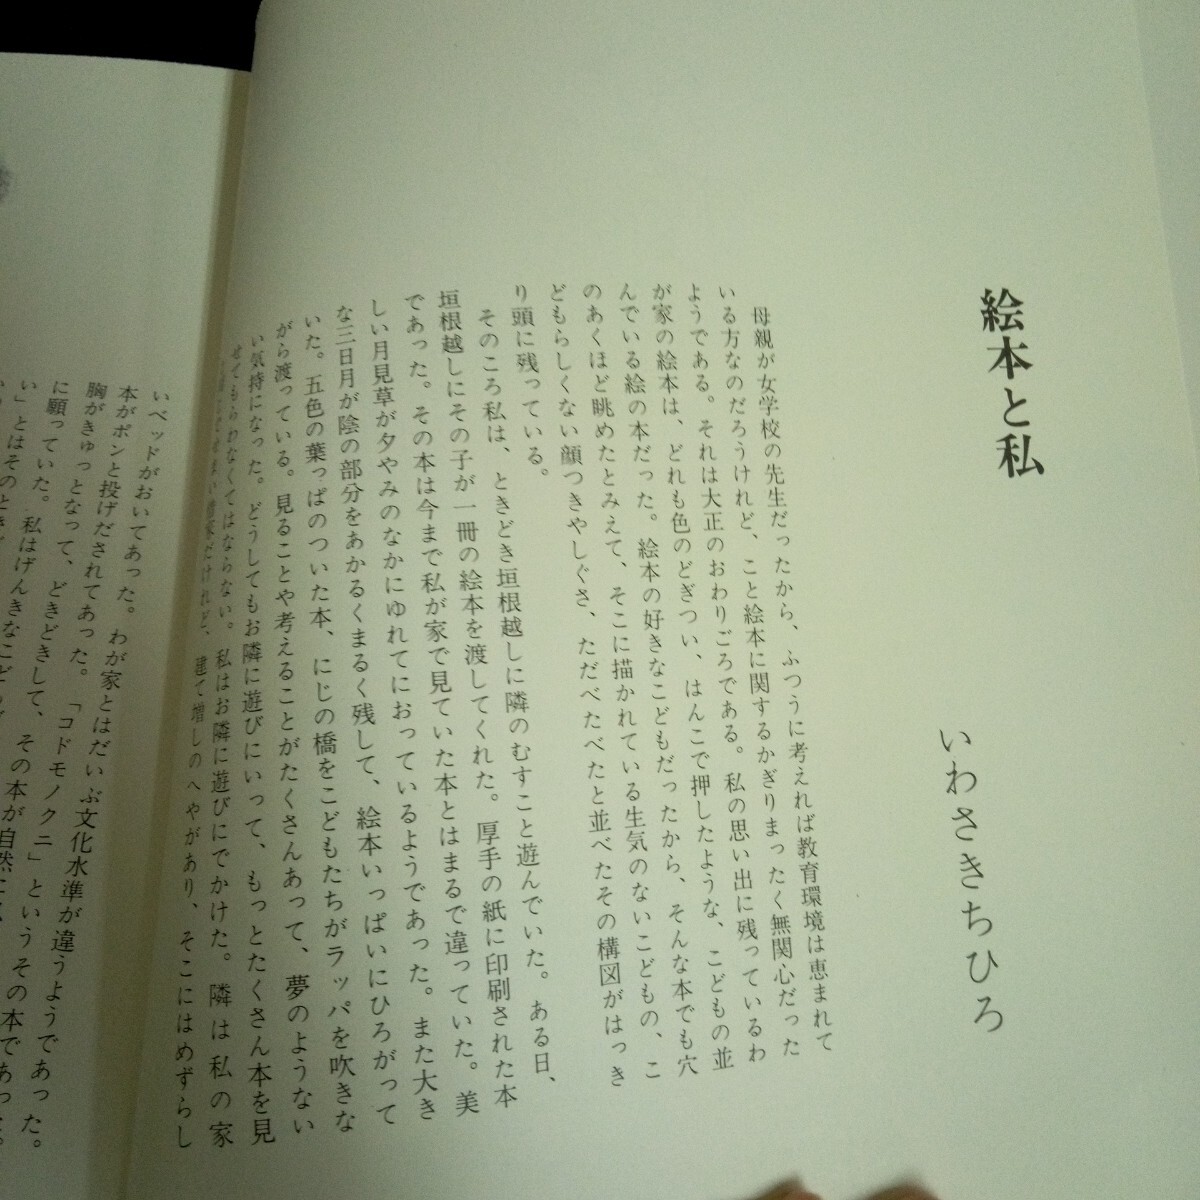 絵本と私
いわさきちひろ
母親が女学校の先生だったから、ふつうに考えれば教育環境は恵まれて
いる方なのだろうけれど、こと絵本に関するかぎりまったく無関心だった
ようである。それは大正のおわりごろである。私の思い出に残っているわ
が家の絵本は、どれも色のどぎつい、はんこで押したような、こどもの並
んでいる絵の本だった。絵本の好きなこどもだったから、そんな本でも穴
のあくほど眺めたとみえて、そこに描かれている生気のないこどもの、こ
どもらしくない顔つきやしぐさ、ただべたべたと並べたその構図がはっき
り頭に残っている。
そのころ私は、ときどき垣根越しに隣のむすこと遊んでいた。ある日、
垣根越しにその子が一冊の絵本を渡してくれた。厚手の紙に印刷された本
であった。その本は今まで私が家で見ていた本とはまるで違っていた。美
しい月見草が夕やみのなかにゆれてにおっているようであった。また大き
な三日月が陰の部分をあかるくまるく残して、絵本いっぱいにひろがって
いた。五色の葉っぱのついた本、にじの橋をこどもたちがラッパを吹きな
がら渡っている。見ることや考えることがたくさんあって、夢のようない
い気持になった。どうしてもお隣に遊びにいって、もっとたくさん本を見
せてもらわなくてはならない。私はお隣に遊びにでかけた。隣は私の家
だけれど、建て増しのへやがあり、そこにはめずらし
いベッドがおいてあった。わが家とはだいぶ文化水準が違うようであった。
本がポンと投げだされてあった。「コドモノクニ」というその本であった。
胸がきゅっとなって、どきどきして、その本が自然に
に願っていた。私はげんきなこども
い」とはそのとき